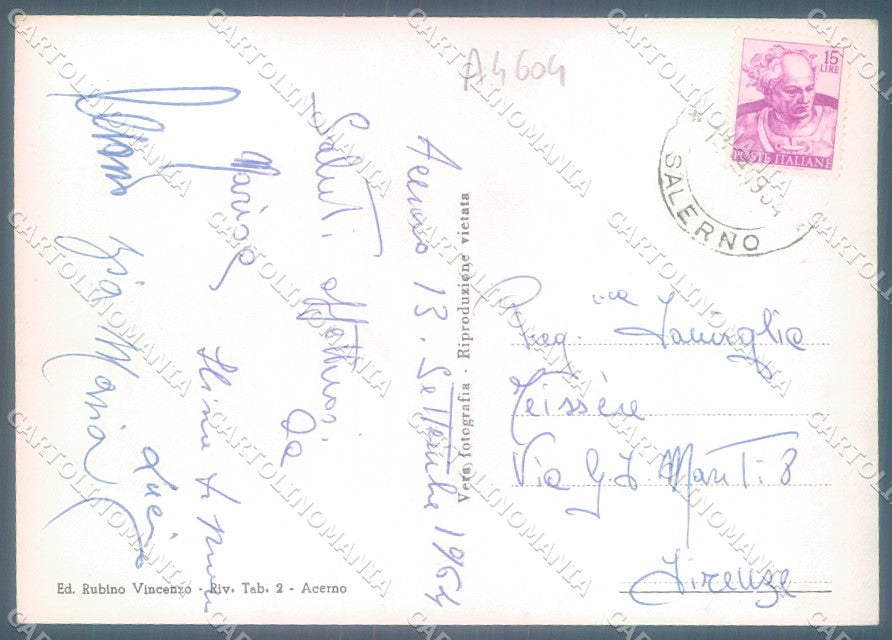 A4604
15
LIRE
POSTE ITALIANE
SALERNO
Acerno 13. Settembre 1964
Saluti affettuosi
da
Marisa
Zia Maria
Lucia
Vera fotografia - Riproduzione vietata
Preg. ica Famiglia
Teissère
Via G. F. Mariti 8
Firenze
Ed. Rubino Vincenzo - Riv. Tab. 2 - Acerno
CARTOLINOMANIA